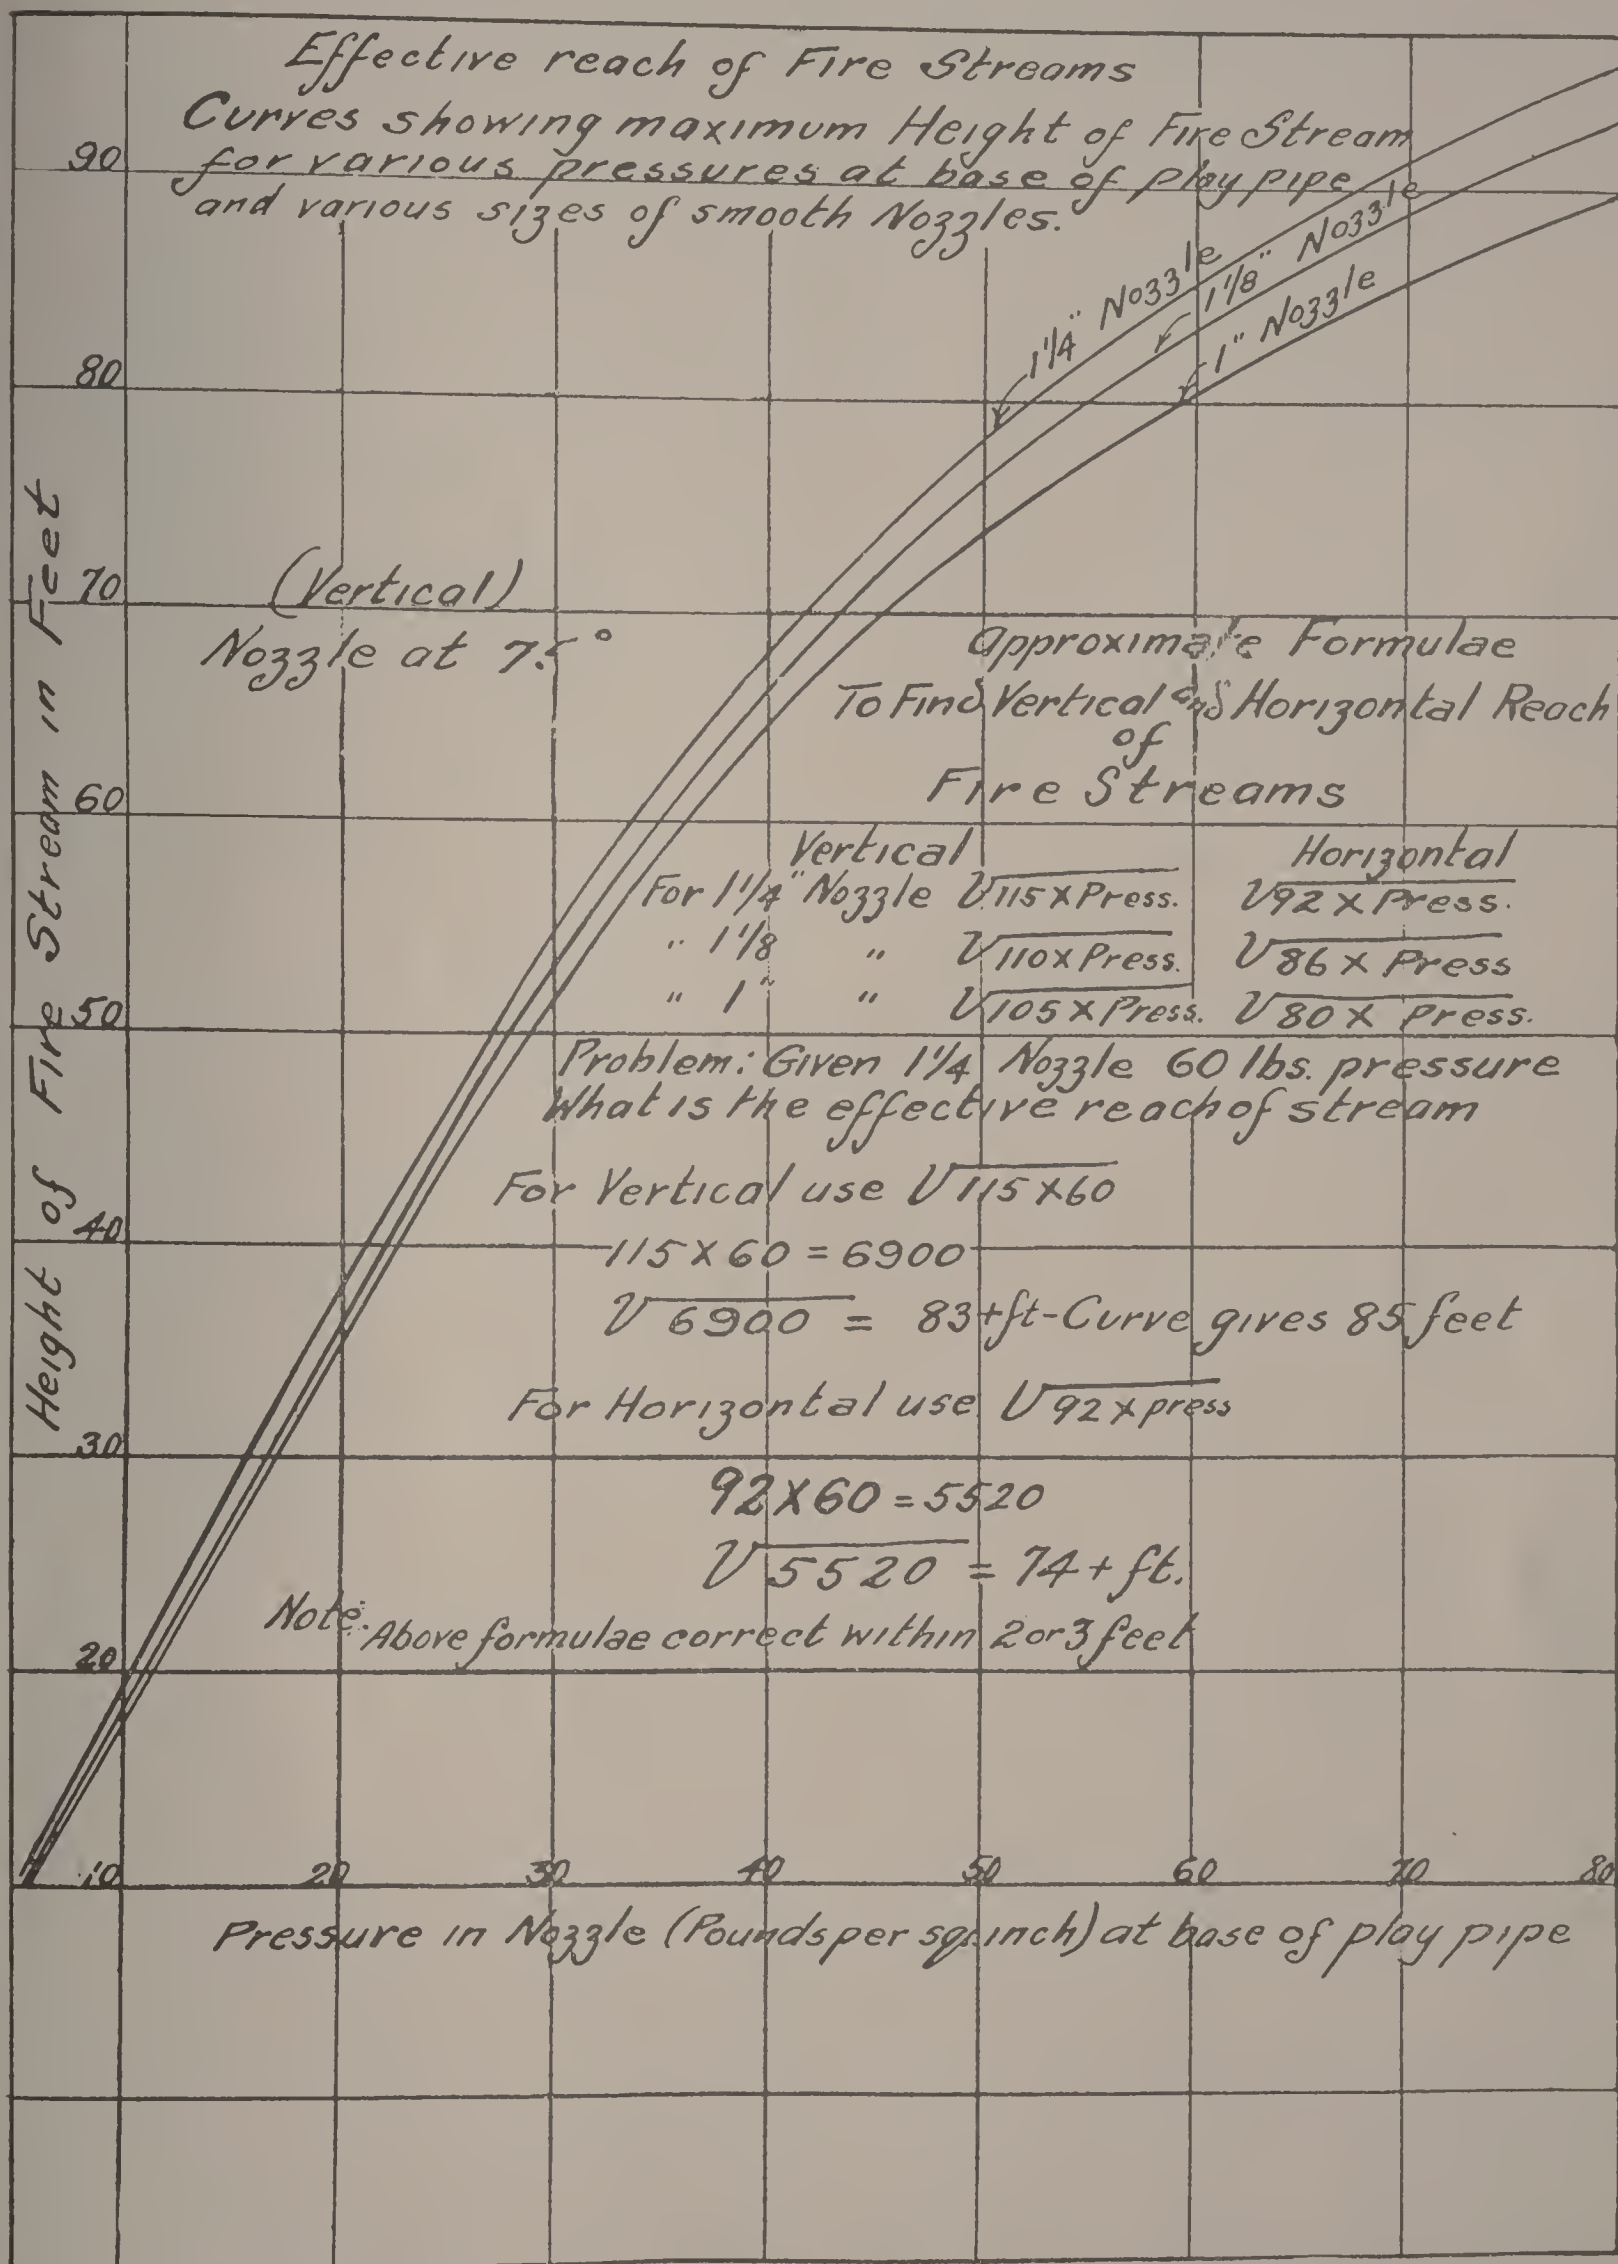 Effective reach of Fire Streams
Curves showing maximum Height of Fire Stream
for various pressures at base of play pipe
and various sizes of smooth Nozzles.
90
80
70
60
50
40
30
20
Height of Fire Stream in Feet
1 1/4" Nozzle
1 1/8" Nozzle
1" Nozzle
(Vertical)
Nozzle at 75°
Approximate Formulae
To Find Vertical and Horizontal Reach
of
Fire Streams
Vertical Horizontal
For 1 1/4" Nozzle √115 X Press. √92 X Press.
" 1 1/8 " √110 X Press. √86 X Press
" 1" " √105 X Press. √80 X Press.
Problem: Given 1 1/4 Nozzle 60 lbs. pressure
What is the effective reach of stream
For Vertical use √115 X 60
115 X 60 = 6900
√6900 = 83+ft-Curve gives 85 feet
For Horizontal use √92 X press
92 X 60 = 5520
√5520 = 74+ ft.
Note: Above formulae correct within 2 or 3 feet
10 20 30 40 50 60 70 80
Pressure in Nozzle (Pounds per sq. inch) at base of play pipe